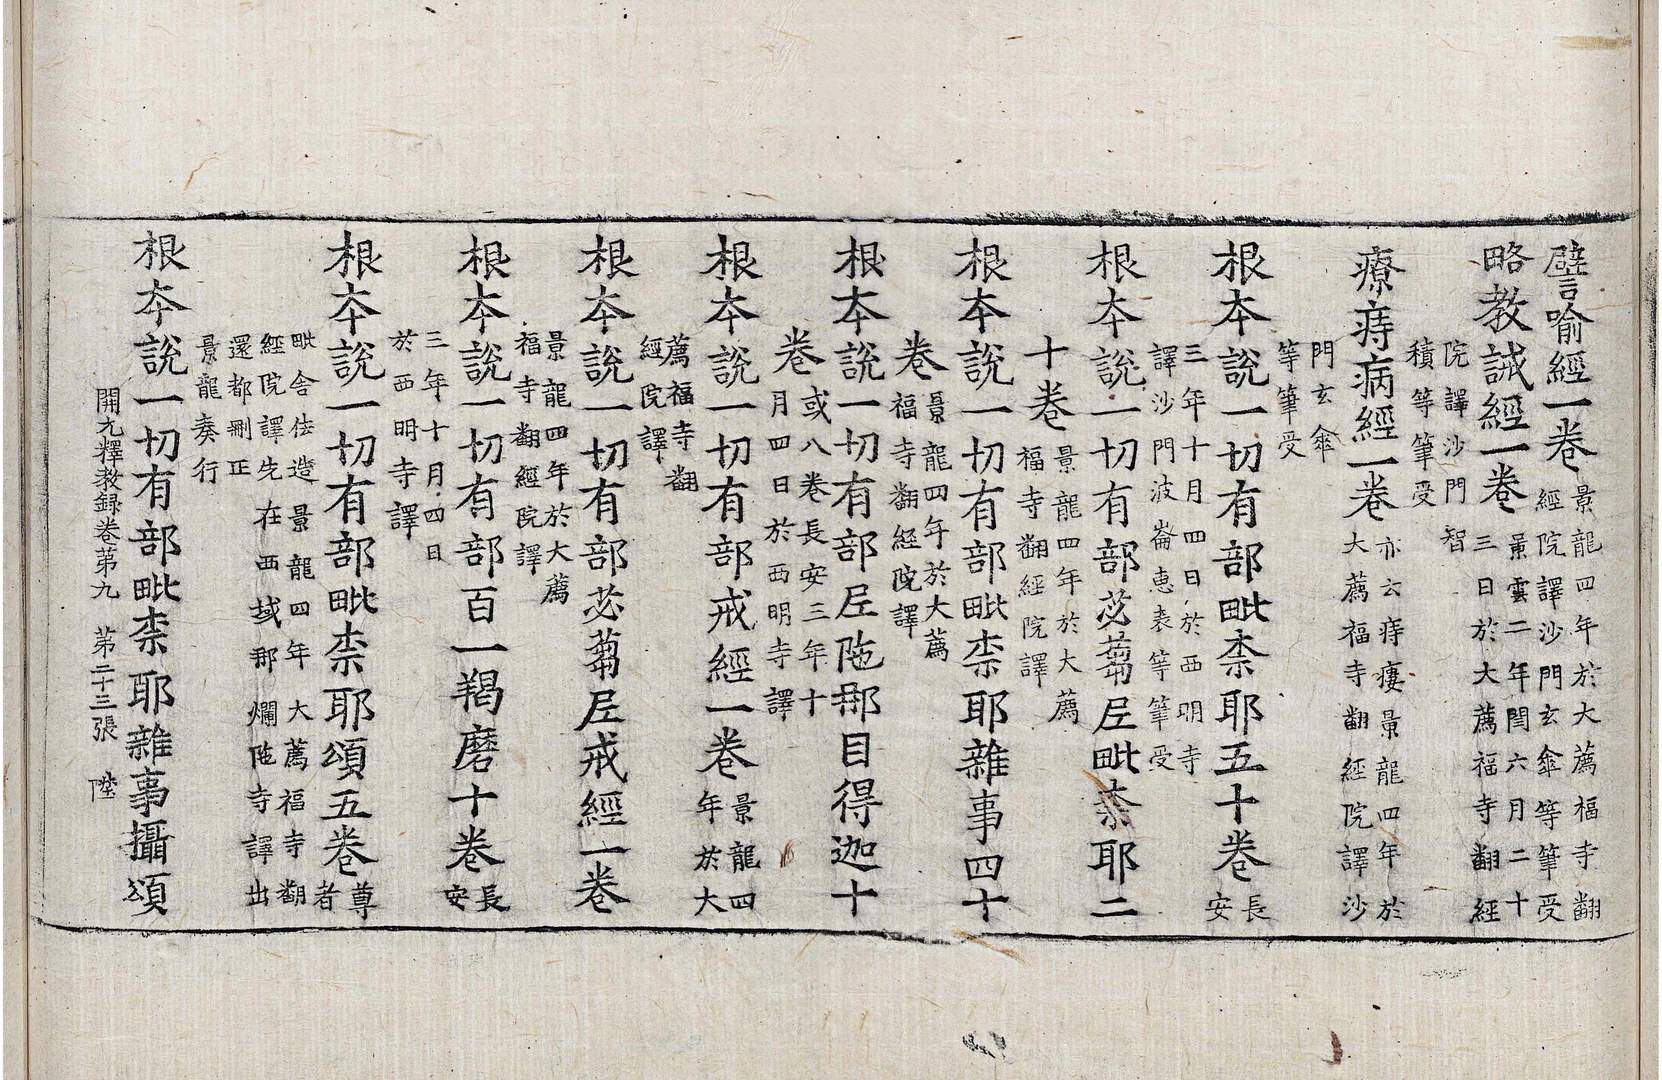 譬喻經一卷景龍四年於大薦福寺翻
經院譯沙門玄傘等筆受
略教誡經一卷景雲二年閏六月二十
三日於大薦福寺翻經
院譯沙門智
積等筆受
療痔病經一卷亦云痔瘻景龍四年於
大薦福寺翻經院譯沙
門玄傘
等筆受
根本說一切有部毗柰耶五十卷長
安
三年十月四日於西明寺
譯沙門波崙惠表等筆受
根本說一切有部苾蒭尼毗柰耶二
十卷景龍四年於大薦
福寺翻經院譯
根本說一切有部毗柰耶雜事四十
卷景龍四年於大薦
福寺翻經院譯
根本說一切有部尼陁那目得迦十
卷或八卷長安三年十
月四日於西明寺譯
根本說一切有部戒經一卷景龍四
年於大
薦福寺翻
經院譯
根本說一切有部苾蒭尼戒經一卷
景龍四年於大薦
福寺翻經院譯
根本說一切有部百一羯磨十卷長
安
三年十月四日
於西明寺譯
根本說一切有部毗柰耶頌五卷尊
者
毗舍佉造景龍四年大薦福寺翻
經院譯先在西域那爛陁寺譯出
還都刪正
景龍奏行
根本說一切有部毗柰耶雜事攝頌
開元釋教録卷苐九 苐二十三張 陸